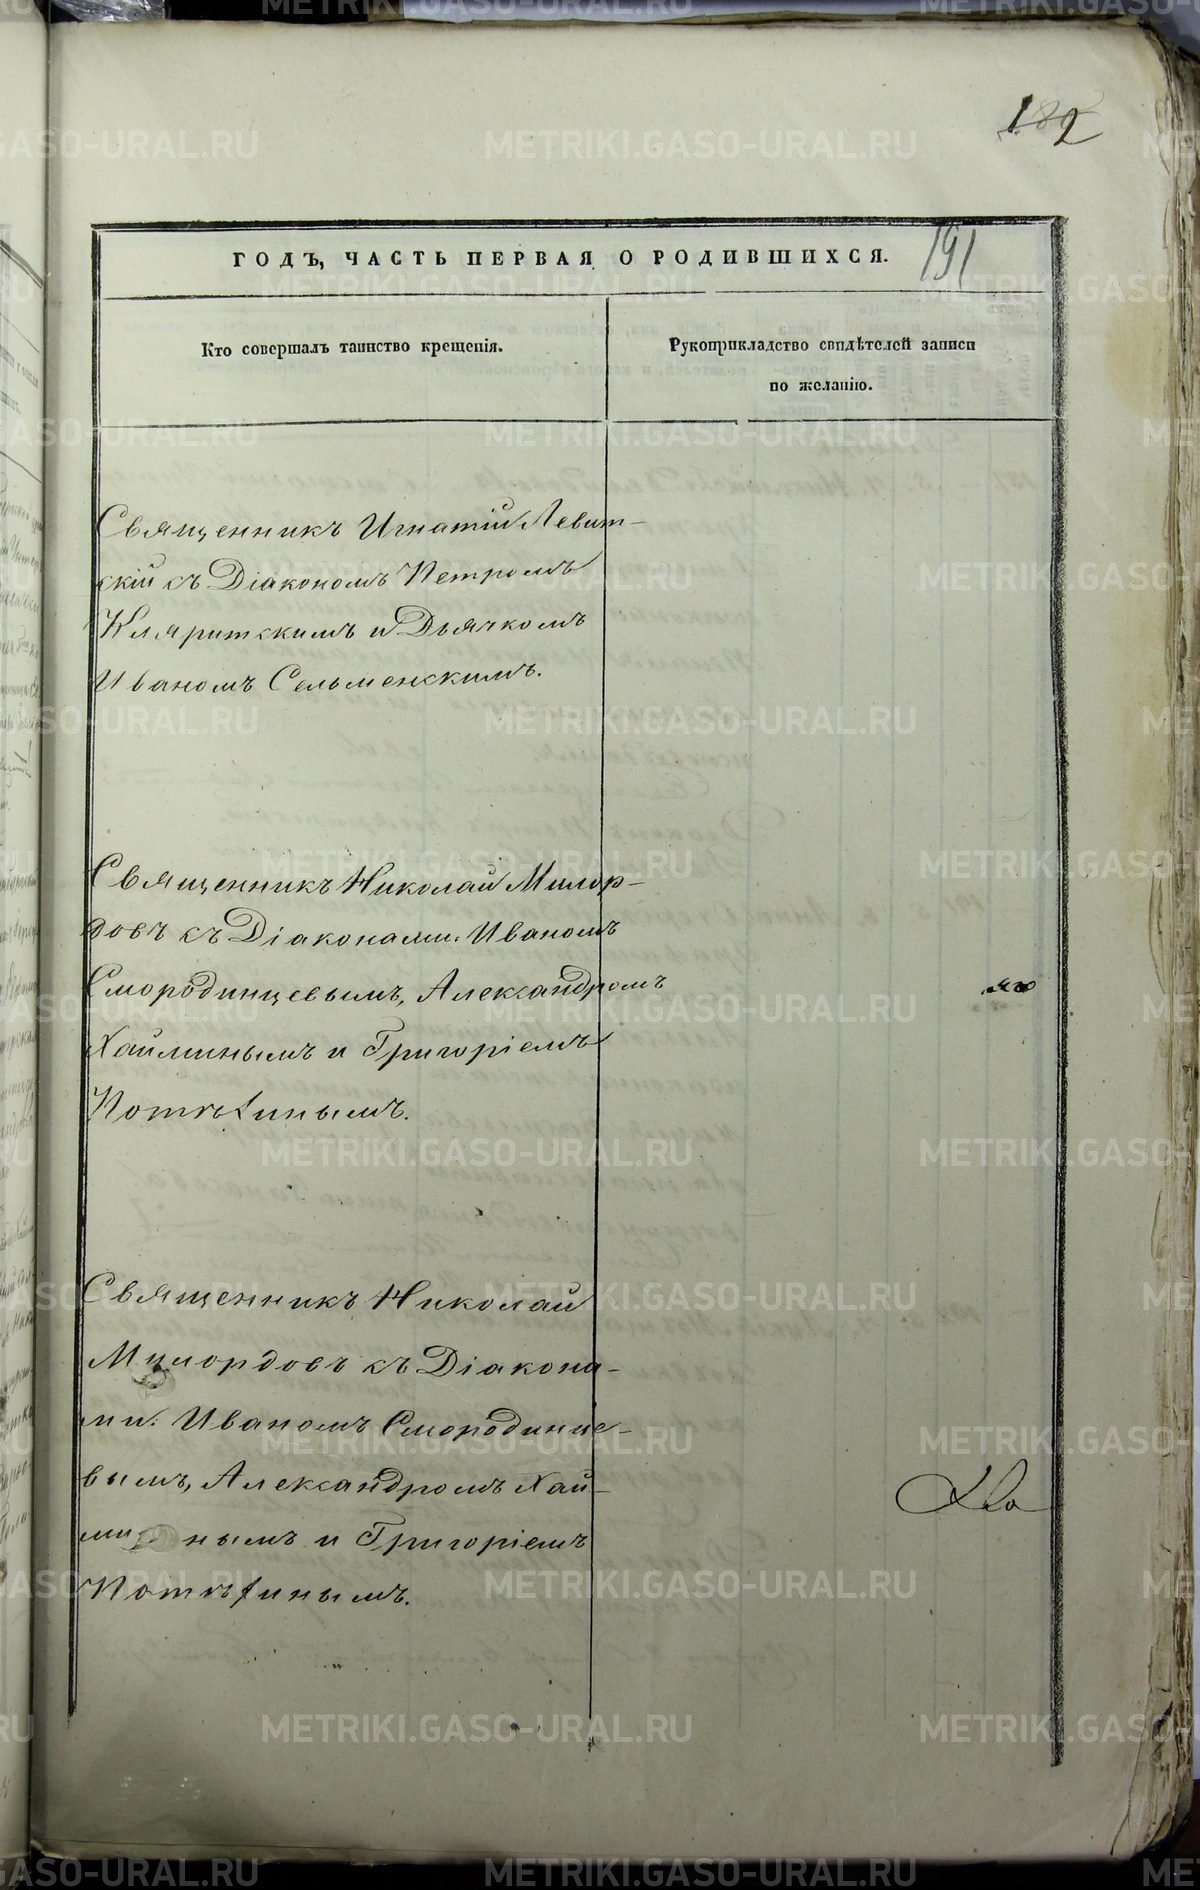 182
191
ГОДЪ, ЧАСТЬ ПЕРВАЯ О РОДИВШИХСЯ.
Кто совершалъ таинство крещенія.
Рукоприкладство свидѣтелей записи
по желанію.
Священникъ Игнатій Левит-
скій съ Діакономъ Петромъ
Кляритскимъ и Дьячкомъ
Иваномъ Сельменскимъ.
Священникъ Николай Милор-
довъ съ Діаконами: Иваномъ
Смородинцевымъ, Александромъ
Хайминымъ и Григоріемъ
яго
Священникъ Николай
Милордовъ съ Діакона-
ми: Иваномъ Смородинце-
вымъ, Александромъ Хай-
минымъ и Григоріемъ
METRIKI.GASO-URAL.RU